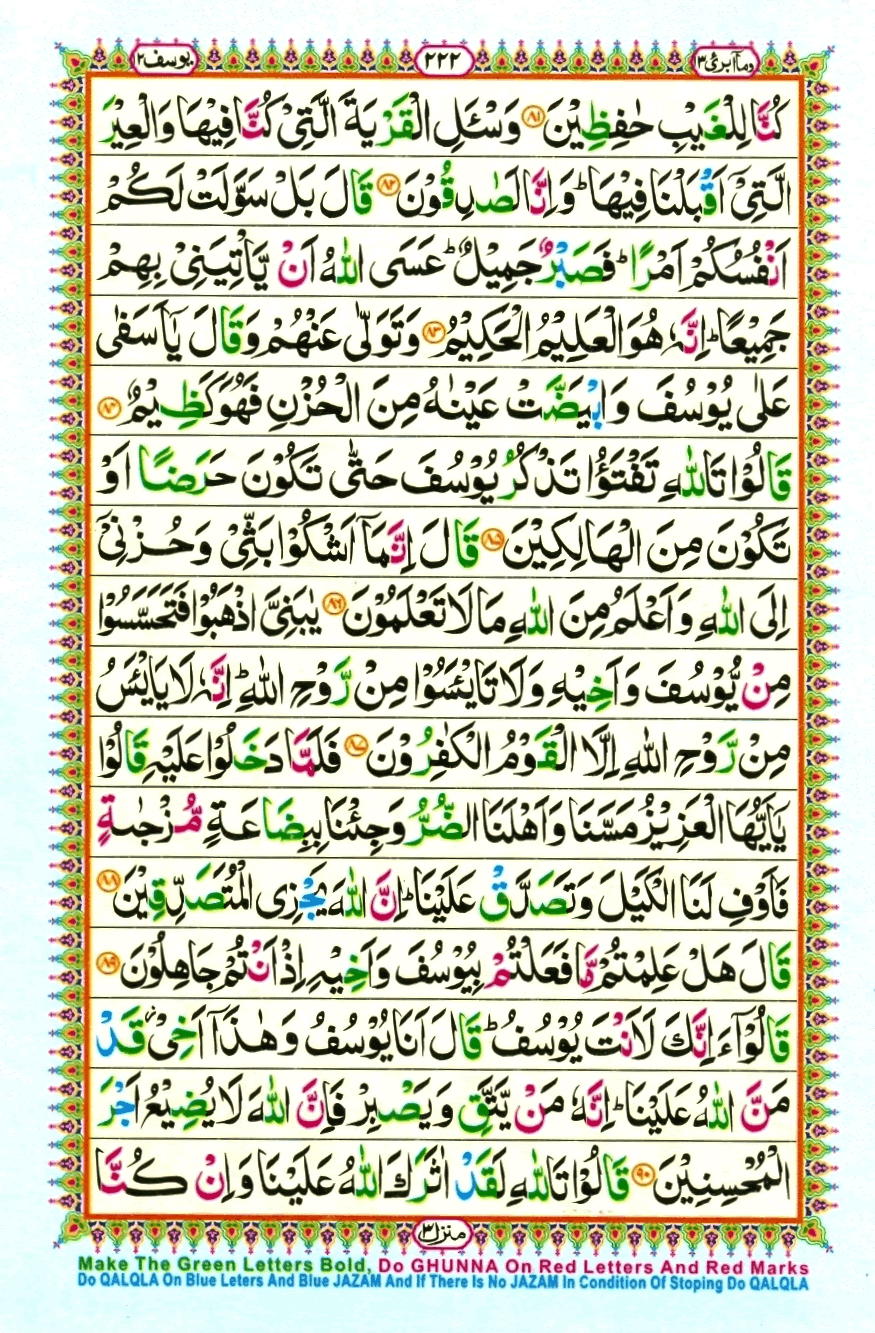 وما ابرئ ۱۳ ۲۲۲ یوسف ۱۲
كُنَّا لِلْغَيْبِ حٰفِظِيْنَ ﴿۸۱﴾ وَسْـَٔلِ الْقَرْيَةَ الَّتِيْ كُنَّا فِيْهَا وَالْعِيْرَ
الَّتِيْۤ اَقْبَلْنَا فِيْهَا ؕ وَاِنَّا لَصٰدِقُوْنَ ﴿۸۲﴾ قَالَ بَلْ سَوَّلَتْ لَكُمْ
اَنْفُسُكُمْ اَمْرًا ؕ فَصَبْرٌ جَمِيْلٌ ؕ عَسَى اللّٰهُ اَنْ يَّاْتِيَنِيْ بِهِمْ
جَمِيْعًا ؕ اِنَّهٗ هُوَ الْعَلِيْمُ الْحَكِيْمُ ﴿۸۳﴾ وَتَوَلّٰى عَنْهُمْ وَقَالَ يٰۤاَسَفٰى
عَلٰى يُوْسُفَ وَابْيَضَّتْ عَيْنٰهُ مِنَ الْحُزْنِ فَهُوَ كَظِيْمٌ ﴿۸۴﴾
قَالُوْا تَاللّٰهِ تَفْتَؤُا تَذْكُرُ يُوْسُفَ حَتّٰى تَكُوْنَ حَرَضًا اَوْ
تَكُوْنَ مِنَ الْهَالِكِيْنَ ﴿۸۵﴾ قَالَ اِنَّمَاۤ اَشْكُوْا بَثِّيْ وَحُزْنِيْۤ
اِلَى اللّٰهِ وَاَعْلَمُ مِنَ اللّٰهِ مَا لَا تَعْلَمُوْنَ ﴿۸۶﴾ يٰبَنِيَّ اذْهَبُوْا فَتَحَسَّسُوْا
مِنْ يُّوْسُفَ وَاَخِيْهِ وَلَا تَايْئَسُوْا مِنْ رَّوْحِ اللّٰهِ ؕ اِنَّهٗ لَا يَايْئَسُ
مِنْ رَّوْحِ اللّٰهِ اِلَّا الْقَوْمُ الْكٰفِرُوْنَ ﴿۸۷﴾ فَلَمَّا دَخَلُوْا عَلَيْهِ قَالُوْا
يٰۤاَيُّهَا الْعَزِيْزُ مَسَّنَا وَاَهْلَنَا الضُّرُّ وَجِئْنَا بِبِضَاعَةٍ مُّزْجٰىةٍ
فَاَوْفِ لَنَا الْكَيْلَ وَتَصَدَّقْ عَلَيْنَا ؕ اِنَّ اللّٰهَ يَجْزِى الْمُتَصَدِّقِيْنَ ﴿۸۸﴾
قَالَ هَلْ عَلِمْتُمْ مَّا فَعَلْتُمْ بِيُوْسُفَ وَاَخِيْهِ اِذْ اَنْتُمْ جَاهِلُوْنَ ﴿۸۹﴾
قَالُوْۤا ءَاِنَّكَ لَاَنْتَ يُوْسُفُ ؕ قَالَ اَنَا يُوْسُفُ وَهٰذَاۤ اَخِيْ ؗ قَدْ
مَنَّ اللّٰهُ عَلَيْنَا ؕ اِنَّهٗ مَنْ يَّتَّقِ وَيَصْبِرْ فَاِنَّ اللّٰهَ لَا يُضِيْعُ اَجْرَ
الْمُحْسِنِيْنَ ﴿۹۰﴾ قَالُوْا تَاللّٰهِ لَقَدْ اٰثَرَكَ اللّٰهُ عَلَيْنَا وَاِنْ كُنَّا
منزل ۳
Make The Green Letters Bold, Do GHUNNA On Red Letters And Red Marks
Do QALQLA On Blue Leters And Blue JAZAM And If There Is No JAZAM In Condition Of Stoping Do QALQLA